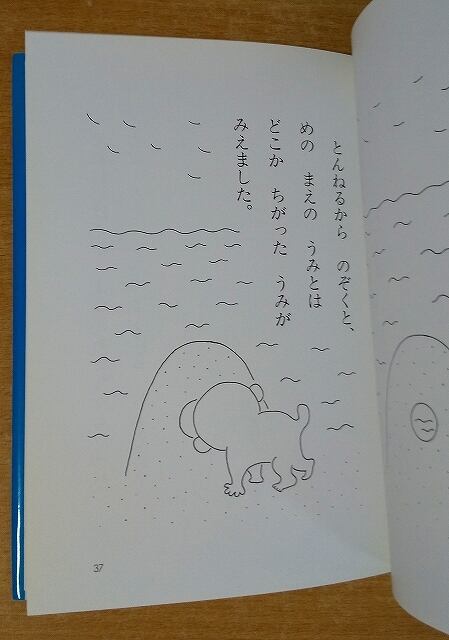 とんねるから　のぞくと、
めの　まえの　うみとは
どこか　ちがった　うみが
みえました。
37